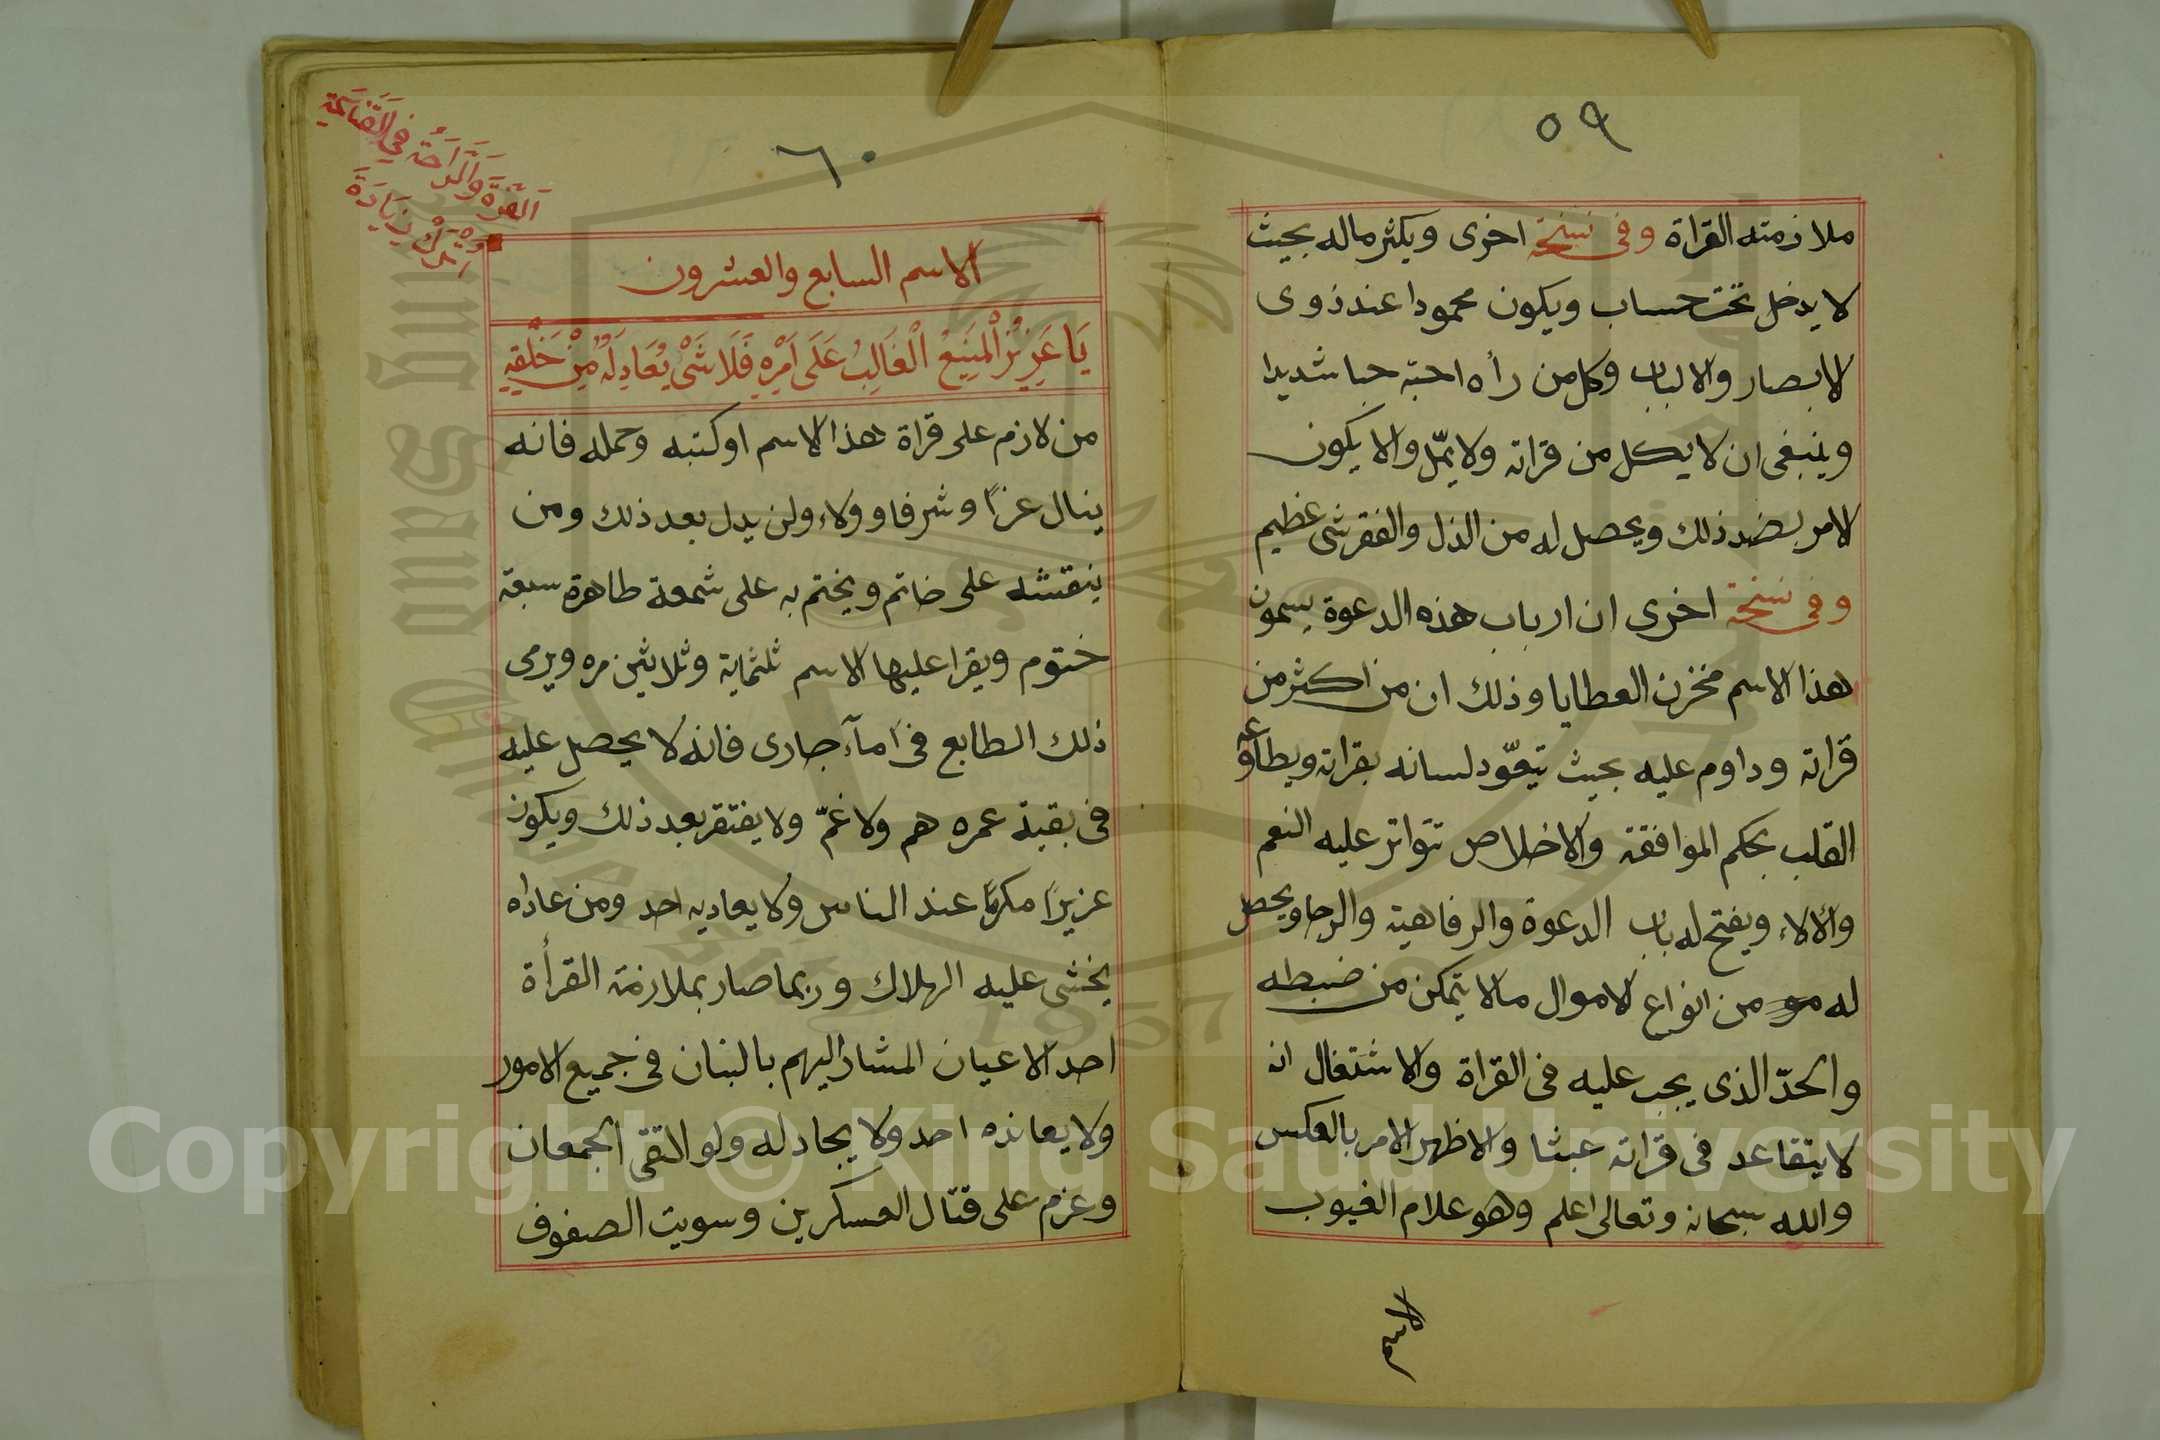 ٥٩
ملازمته القراة وفى نسخة اخرى ويكثر ماله بحيث
لا يدخل تحت حساب ويكون محمودا عند ذوى
الابصار والالباب وكل من رأه احبته حبا شديدا
وينبغى ان لا يكل من قراته ولا يملّ والا يكون
الامر بضد ذلك ويحصل له من الذل والفقر شى عظيم
وفى نسخة اخرى ان ارباب هذه الدعوة يسمون
هذا الاسم مخزن العطايا وذلك ان من اكثر من
قراته وداوم عليه بحيث تيعوّد لسانه بقراته ويطاوعه
القلب بحكم الموافقة والاخلاص تتواتر عليه النعم
والالاء ويفتح له باب الدعوة والرفاهية والرجا ويحصل
له من انواع الاموال مالا يتمكن من ضبطه
والحدّ الذى يجب عليه فى القراة والاشتغال ان
لا يتقاعد فى قراته عبثا والا ظهر الامر بالعكس
والله سبحانه وتعالى اعلم وهو علام الغيوب
الاسم
٦٠
الاسم السابع والعشرون
يَا عَزِيْزُ الْمَنِيعُ الْغَالِبُ عَلَى اَمْرِهِ فَلَا شَىْ يُعَادِلُهُ مِنْ خَلْقِهِ
من لازم على قراة هذا الاسم او كتبه وحمله فانه
ينال عزا وشرفا وولاء ولن يدل بعد ذلك ومن
ينقشه على خاتم ويختم به على شمعة طاهرة سبعة
ختوم ويقرا عليها الاسم ثلثماية وثلاثين مره ويرمى
ذلك الطابع فى مآء جارى فانه لا يحصل عليه
فى بقية عمره هم ولا غمّ ولا يفتقر بعد ذلك ويكون
عزيزا مكرما عند الناس ولا يعاديه احد ومن عاداه
يخشى عليه الهلاك وربما صار بملازمة القرأة
احد الاعيان المشار اليهم بالبنان فى جميع الامور
ولا يعانده احد ولا يجادله ولو التقى الجمعان
وعزم على قتال العسكرين وسويت الصفوف
Copyright © King Saud University
1957